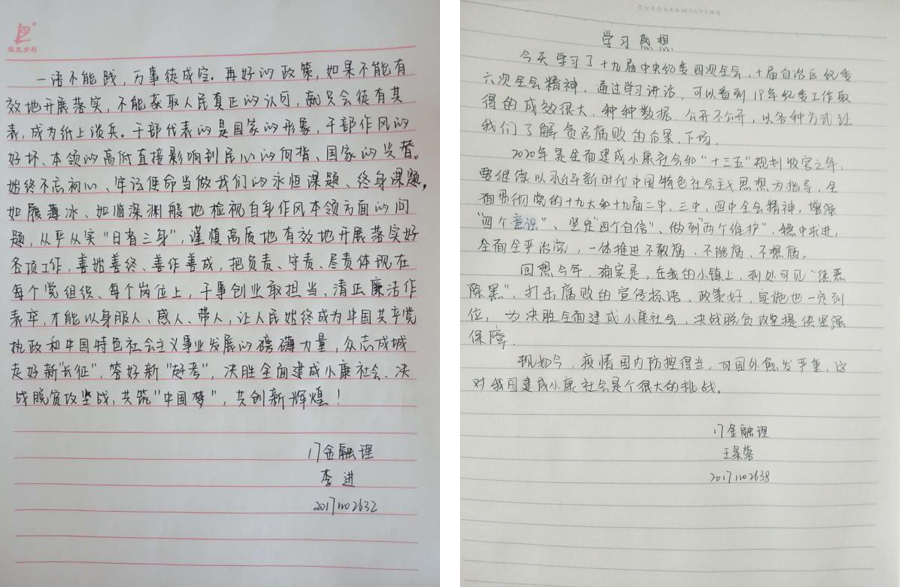 一语不能践，万事徒成空。再好的政策，如果不能有
效地开展落实，不能获取人民真正的认可，就只会徒有其
表，成为纸上谈兵。干部代表的是国家的形象，干部作风的
好坏、本领的高低直接影响到民心的向背、国家的兴替。
始终不忘初心、牢记使命当做我们的永恒课题、终身课题，
如履薄冰、如临深渊般地检视自身作风本领方面的问
题，从严从实"日省三身"，谨慎高质地有效地开展落实好
各项工作，善始善终、善作善成，把负责、守责、尽责体现在
每个党组织、每个岗位上，干事创业敢担当、清正廉洁作
表率，才能以身服人、感人、带人，让人民始终成为中国共产党
执政和中国特色社会主义事业发展的磅礴力量，众志成城
走好新"长征"，答好新"赶考"，决胜全面建成小康社会、决
战脱贫攻坚战，共筑"中国梦"，共创新辉煌！
17金融理
李进
201711002632
学习感想
今天学习了十九届中央纪委四次全会，十届自治区纪委
六次全会精神，通过学习讲话，可以看到19年纪委工作取
得的成效很大，种种数据，公开不公开，以各种方式让
我们了解贪污腐败的后果、下场。
2020年是全面建成小康社会和"十三五"规划收官之年，
要继续以习近平新时代中国特色社会主义思想为指导，全
面贯彻党的十九大和十九届二中、三中、四中全会精神，增强
"四个意识"、坚定"四个自信"、做到"两个维护"，稳中求进，
全面从严治党，一体推进不敢腐、不能腐、不想腐。
回想今年，确实是，在我的小镇上，到处可见"扫黑
除恶"，打击腐败的宣传标语，政策好，实施也一定到
位，为决胜全面建成小康社会，决战脱贫攻坚提供坚强
保障。
现如今，疫情国内防控得当，可国外愈发严重，这
对我国建成小康社会是个很大的挑战。
17金融理
201711002638